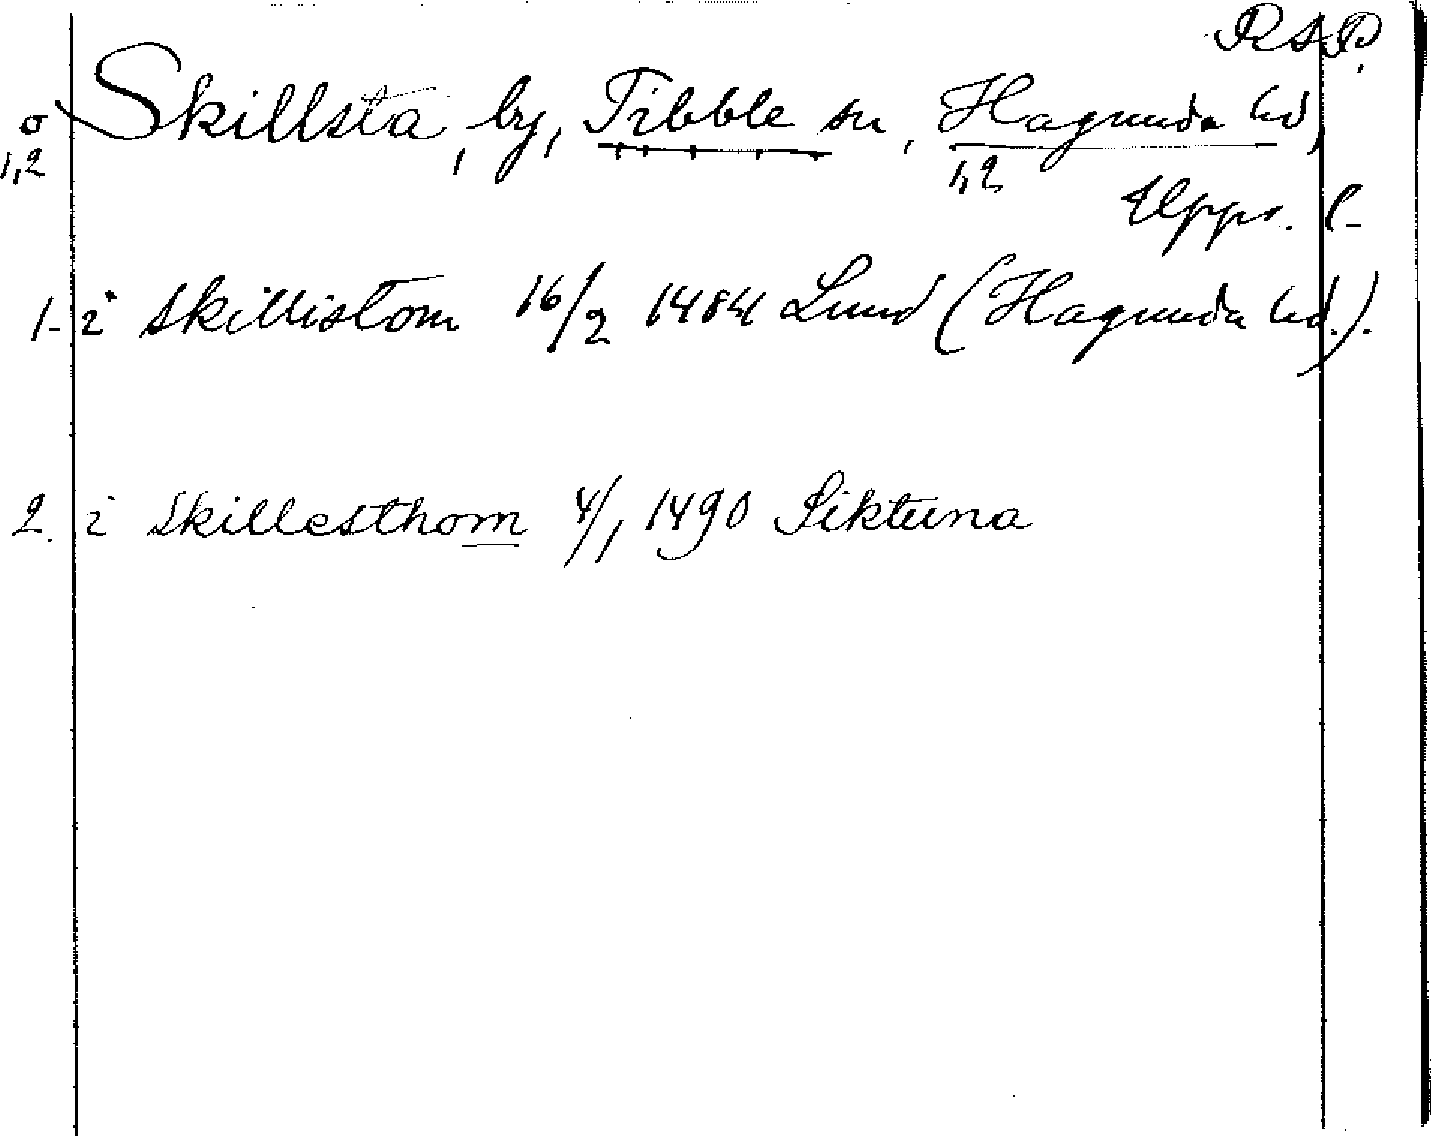 RAP.
σ Skillsta, by, Tibble sn, Hagunda hd,
1,2 1,2
Upps. l.
1. i skillistom 16/2 1484 Lund (Hagunda hd.).
2. i Skillesthom 4/1 1490 Siktuna